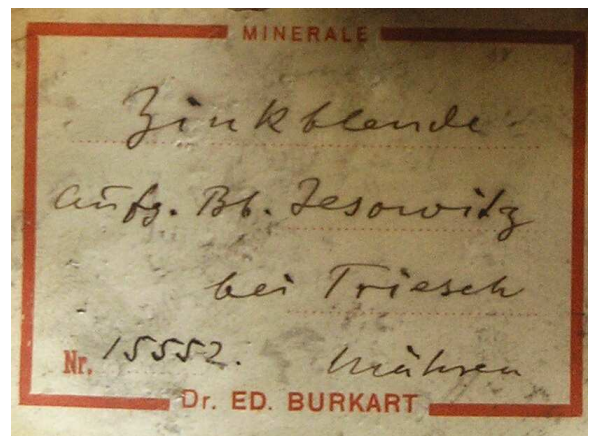 MINERALE
Zinkblende
Aufg. Bb. Jesowitz
bei Triesch
Nr. 15552. Mähren
Dr. ED. BURKART